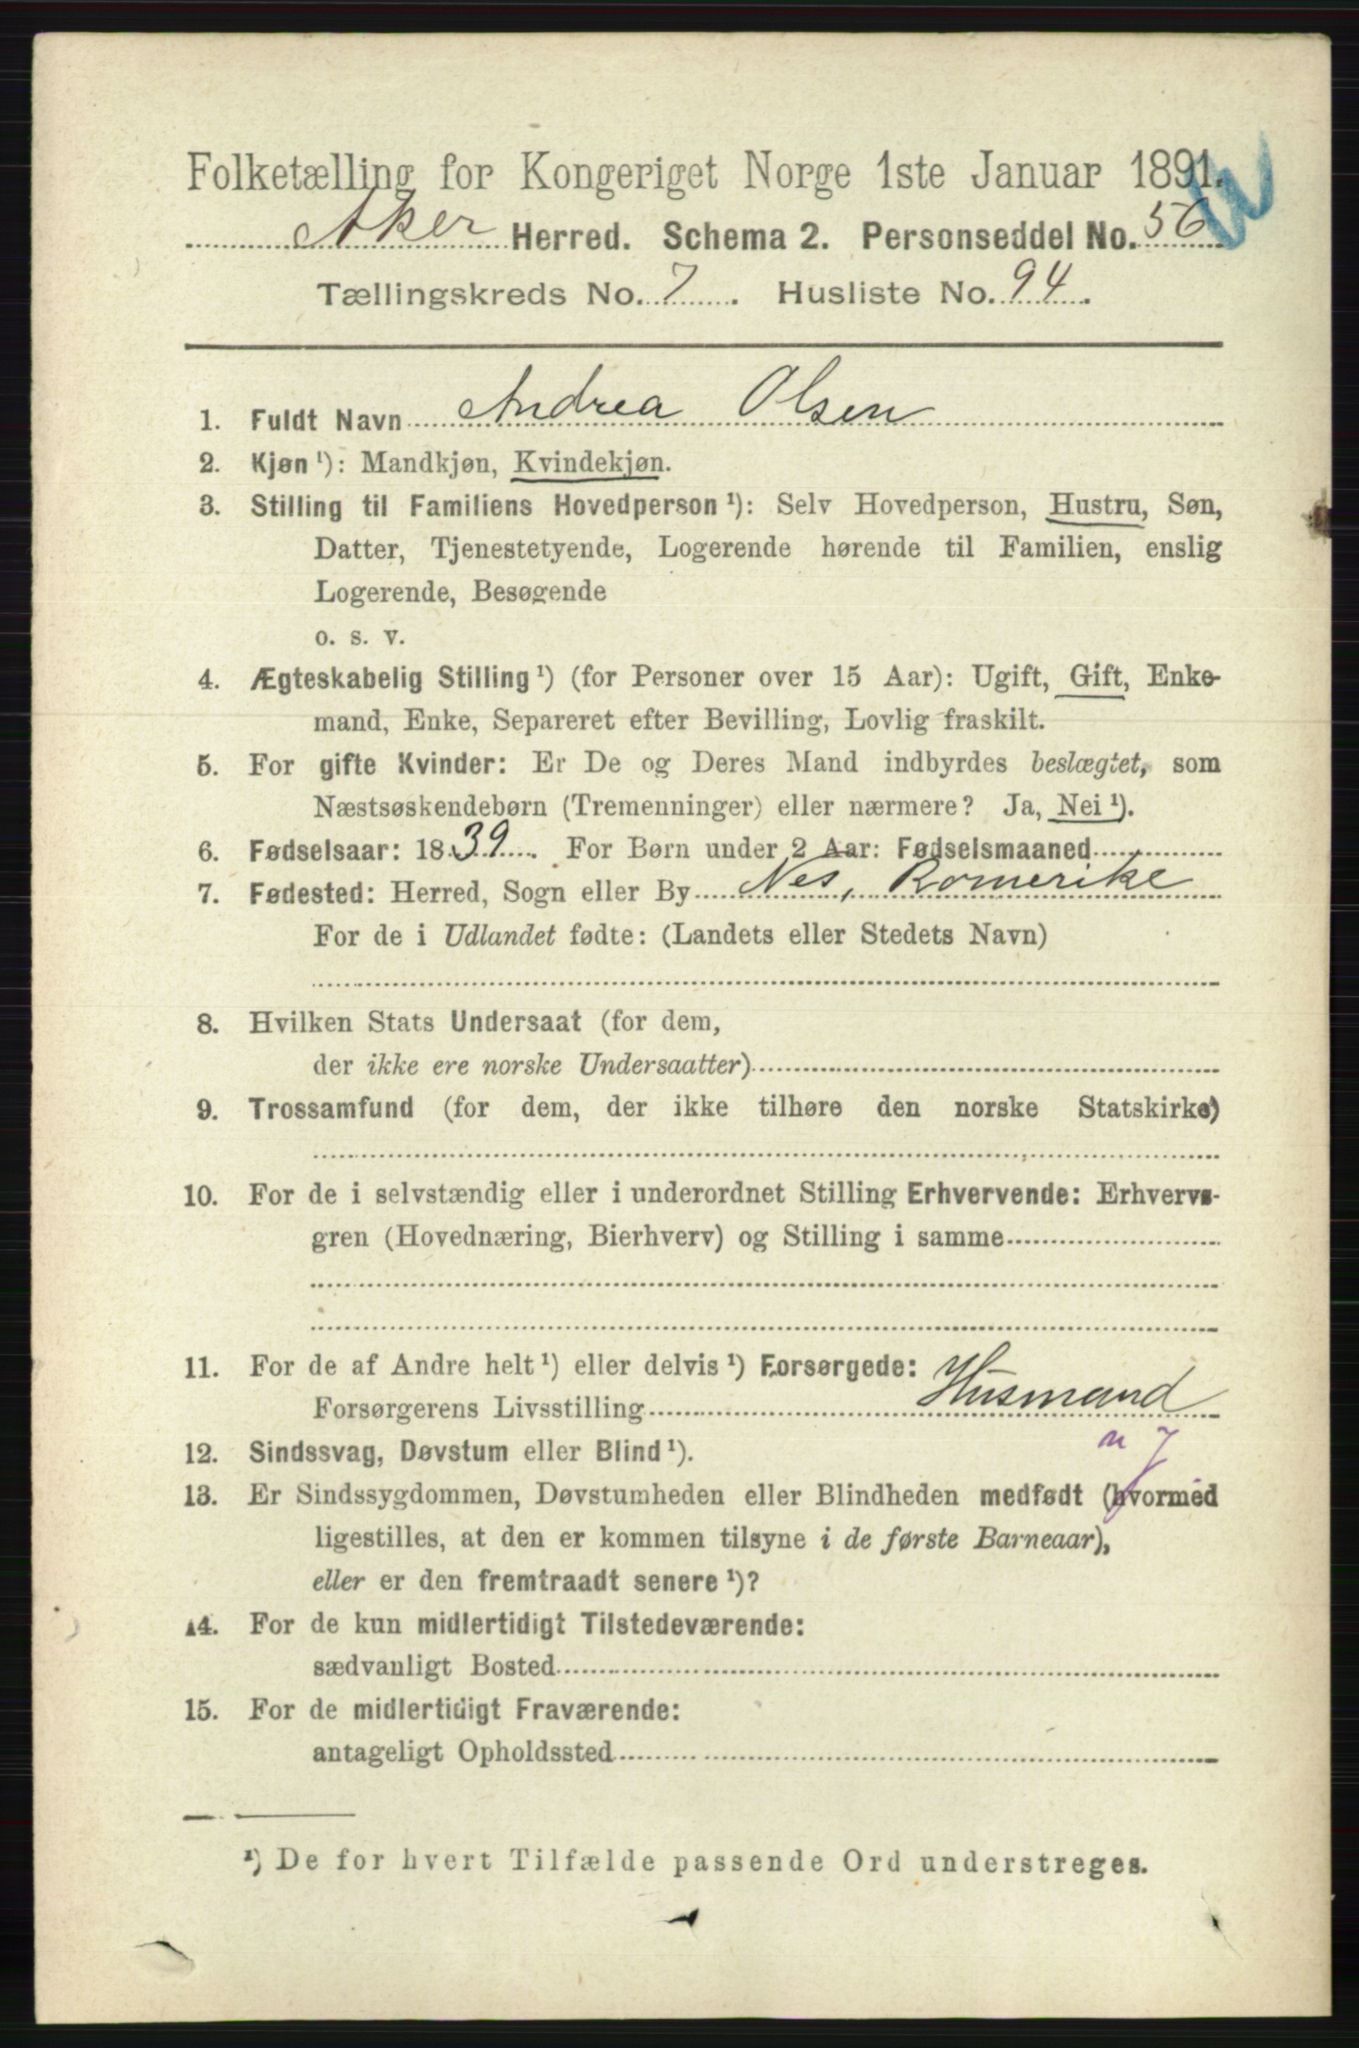 Folketælling for Kongeriget Norge 1ste Januar 1891.
Aker Herred. Schema 2. Personseddel No. 56
Tællingskreds No. 7. Husliste No. 94.
1. Fuldt Navn Andrea Olsen
2. Kjøn¹): Mandkjøn, Kvindekjøn.
3. Stilling til Familiens Hovedperson¹): Selv Hovedperson, Hustru, Søn,
Datter, Tjenestetyende, Logerende hørende til Familien, enslig
Logerende, Besøgende
o. s. v.
4. Ægteskabelig Stilling¹) (for Personer over 15 Aar): Ugift, Gift, Enke-
mand, Enke, Separeret efter Bevilling, Lovlig fraskilt.
5. For gifte Kvinder: Er De og Deres Mand indbyrdes beslægtet, som
Næstsøskendebørn (Tremenninger) eller nærmere? Ja, Nei¹).
6. Fødselsaar: 1839. For Børn under 2 Aar: Fødselsmaaned
7. Fødested: Herred, Sogn eller By Nes, Romerike
For de i Udlandet fødte: (Landets eller Stedets Navn)
8. Hvilken Stats Undersaat (for dem,
der ikke ere norske Undersaatter)
9. Trossamfund (for dem, der ikke tilhøre den norske Statskirke)
10. For de i selvstændig eller i underordnet Stilling Erhvervende: Erhvervs-
gren (Hovednæring, Bierhverv) og Stilling i samme
11. For de af Andre helt¹) eller delvis¹) Forsørgede:
Forsørgerens Livsstilling Husmand
12. Sindssvag, Døvstum eller Blind¹).
13. Er Sindssygdommen, Døvstumheden eller Blindheden medfødt (hvormed
ligestilles, at den er kommen tilsyne i de første Barneaar),
eller er den fremtraadt senere¹)?
14. For de kun midlertidigt Tilstedeværende:
sædvanligt Bosted
15. For de midlertidigt Fraværende:
antageligt Opholdssted
¹) De for hvert Tilfælde passende Ord understreges.